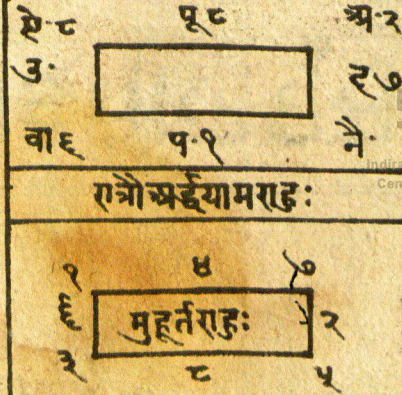 पू ८ अ·२
उ· द ७
वा ६ प·१ नै·
रात्रौअर्द्धयामराहुः
१ ४ ७
मुहूर्तराहुः २
३ ८ ५